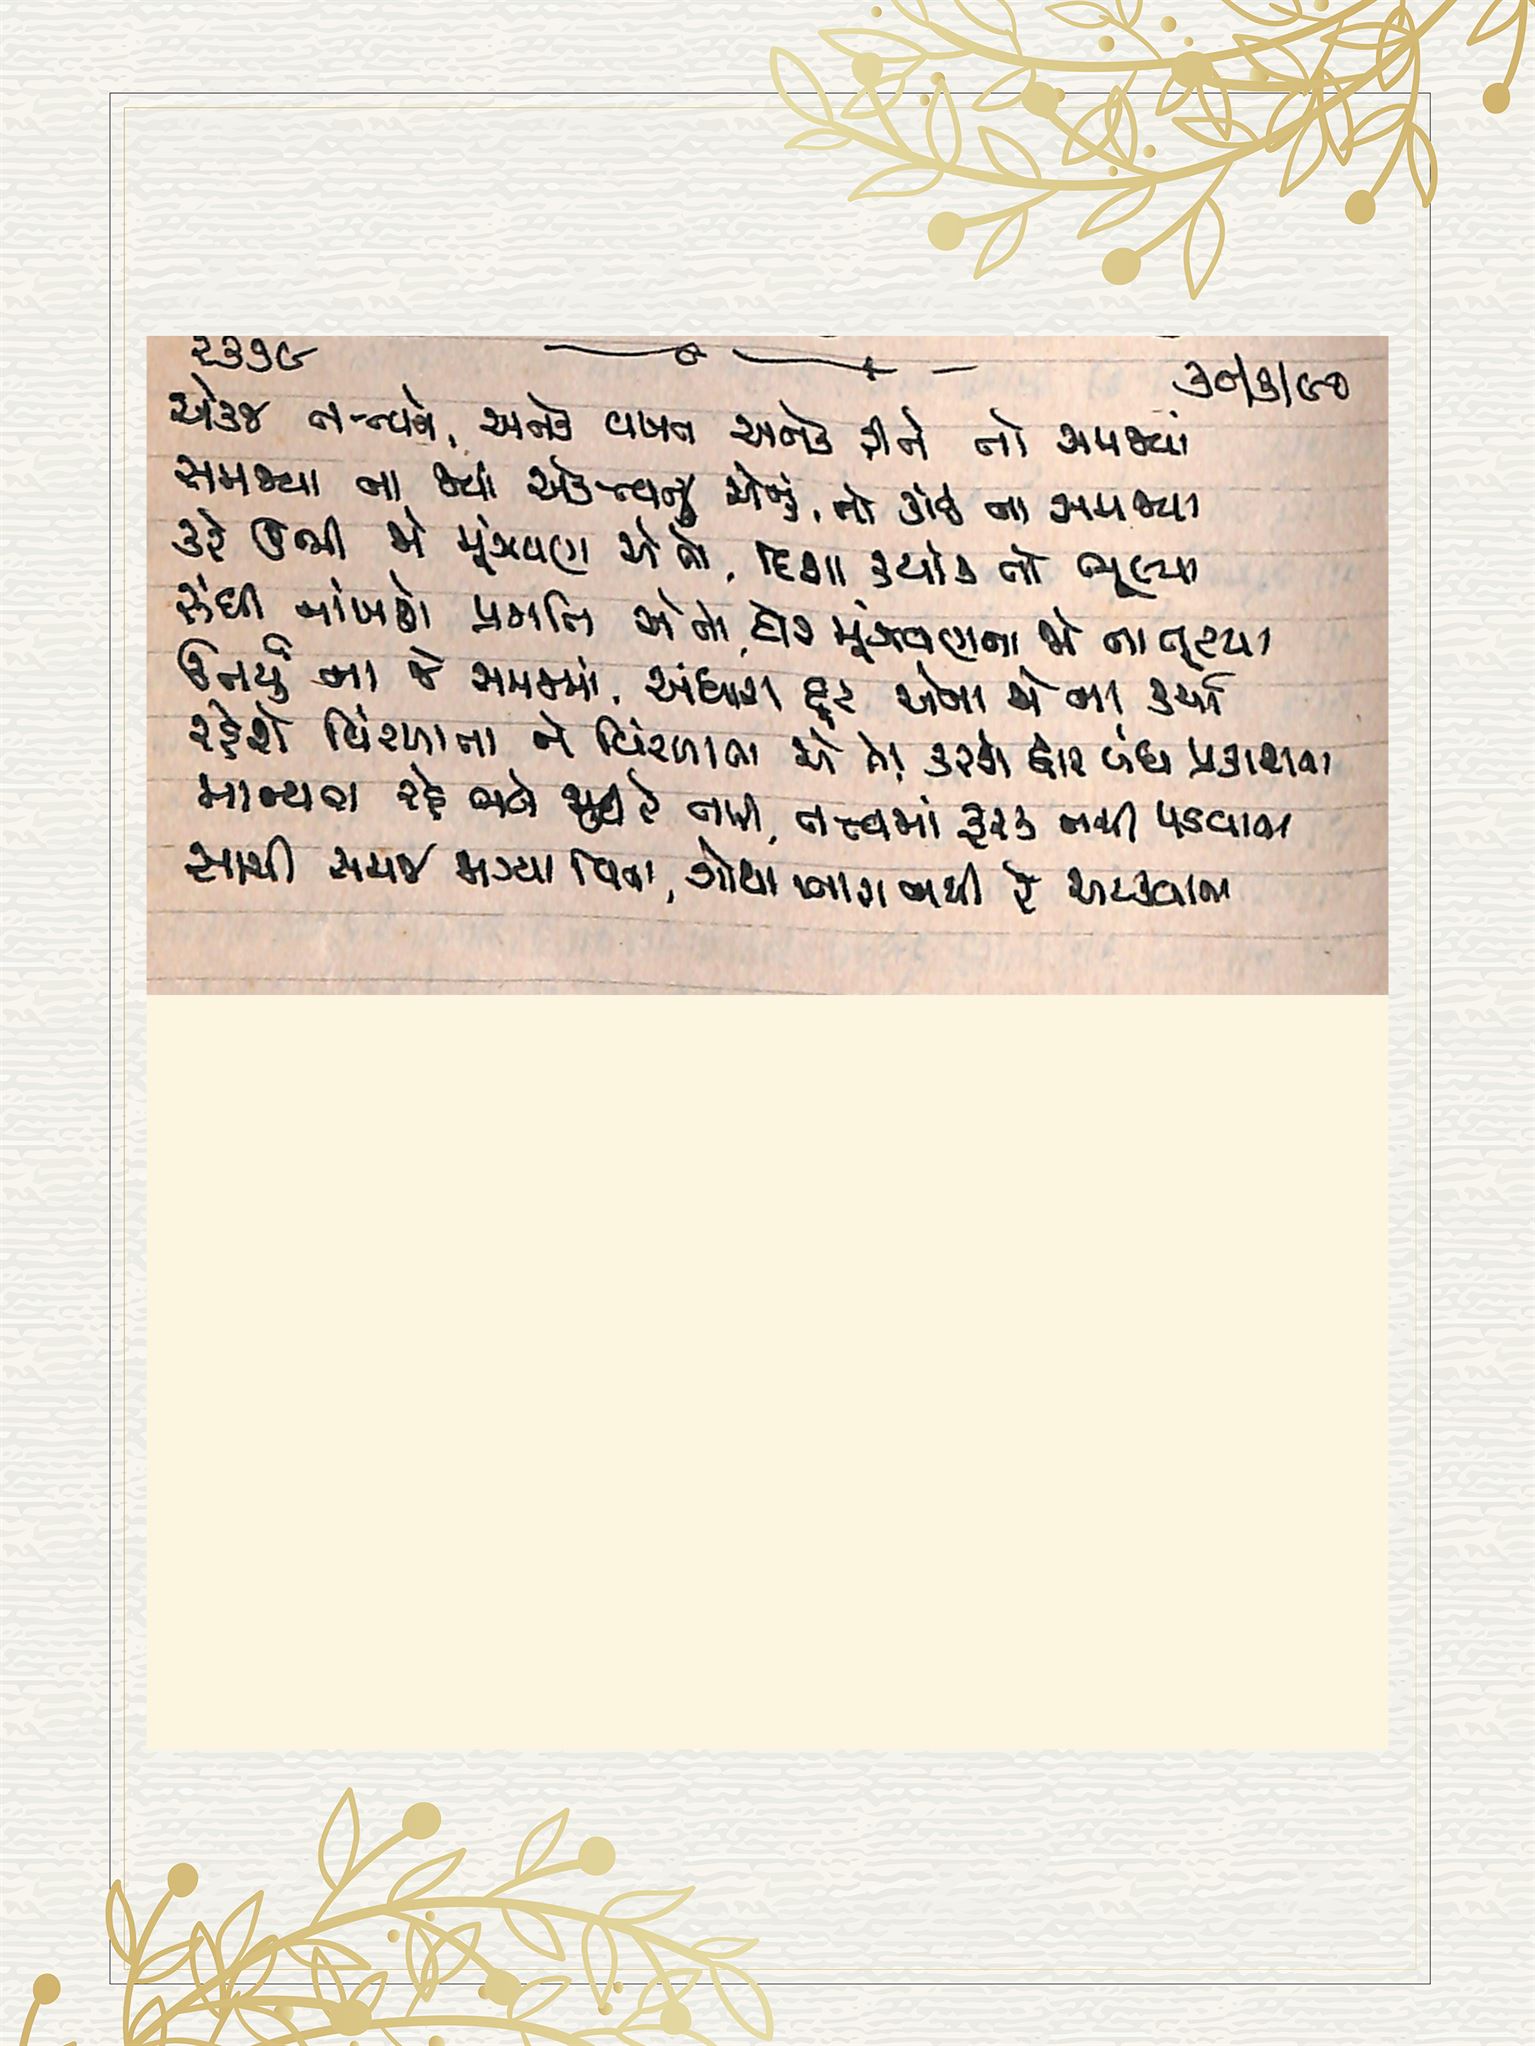 ૨૩૭૯
૩૦/૩/૯૦
એકજ તત્ત્વને, અનેક વખત અનેક રીતે તો સમજ્યાં
સમજ્યા ના જ્યાં એકત્વનું એનું, તો કાંઈ ના સમજ્યા
કરે ઊભી એ મૂંઝવણ એ તો, દિશા ક્યાંક તો ભૂલ્યા
રૂંધી નાંખશે પ્રગતિ એ તો, દોર મૂંઝવણના જો ના તૂટ્યા
ઊતર્યું ના જે સમજમાં, અંધારા દૂર એના જો ના કર્યા
રહેશે ચિંતાના ને ચિંતાના એ તો, કરશે દ્વાર બંધ પ્રકાશના
માન્યતા રહે ભલે જુદી રે તારી, તત્ત્વમાં ફરક નથી પડવાના
સાચી સમજ જાગ્યા વિના, ગોથા ખાતા નથી રે અટકવાના